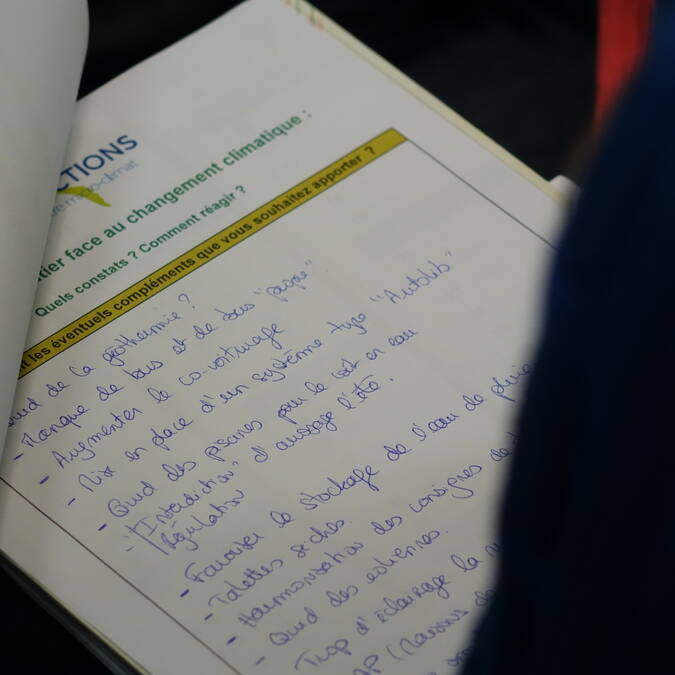 CTIONS
de mon climat
tier face au changement climatique :
Quels constats ? Comment réagir ?
t les éventuels compléments que vous souhaitez apporter ?
Quid de la géothermie ?
- Manque de bus et de bus "propre"
- Augmenter le co-voiturage
- Mise en place d'un système type "Autolib"
- Quid des piscines pour le coût en eau
- "Interdiction" d'arrosage l'été.
Régulation
- Favoriser le stockage de l'eau de pluie
- Toilettes sèches
- Harmonisation des consignes de
- Quid des éoliennes.
- Trop d'éclairage la
AP (Maisons de